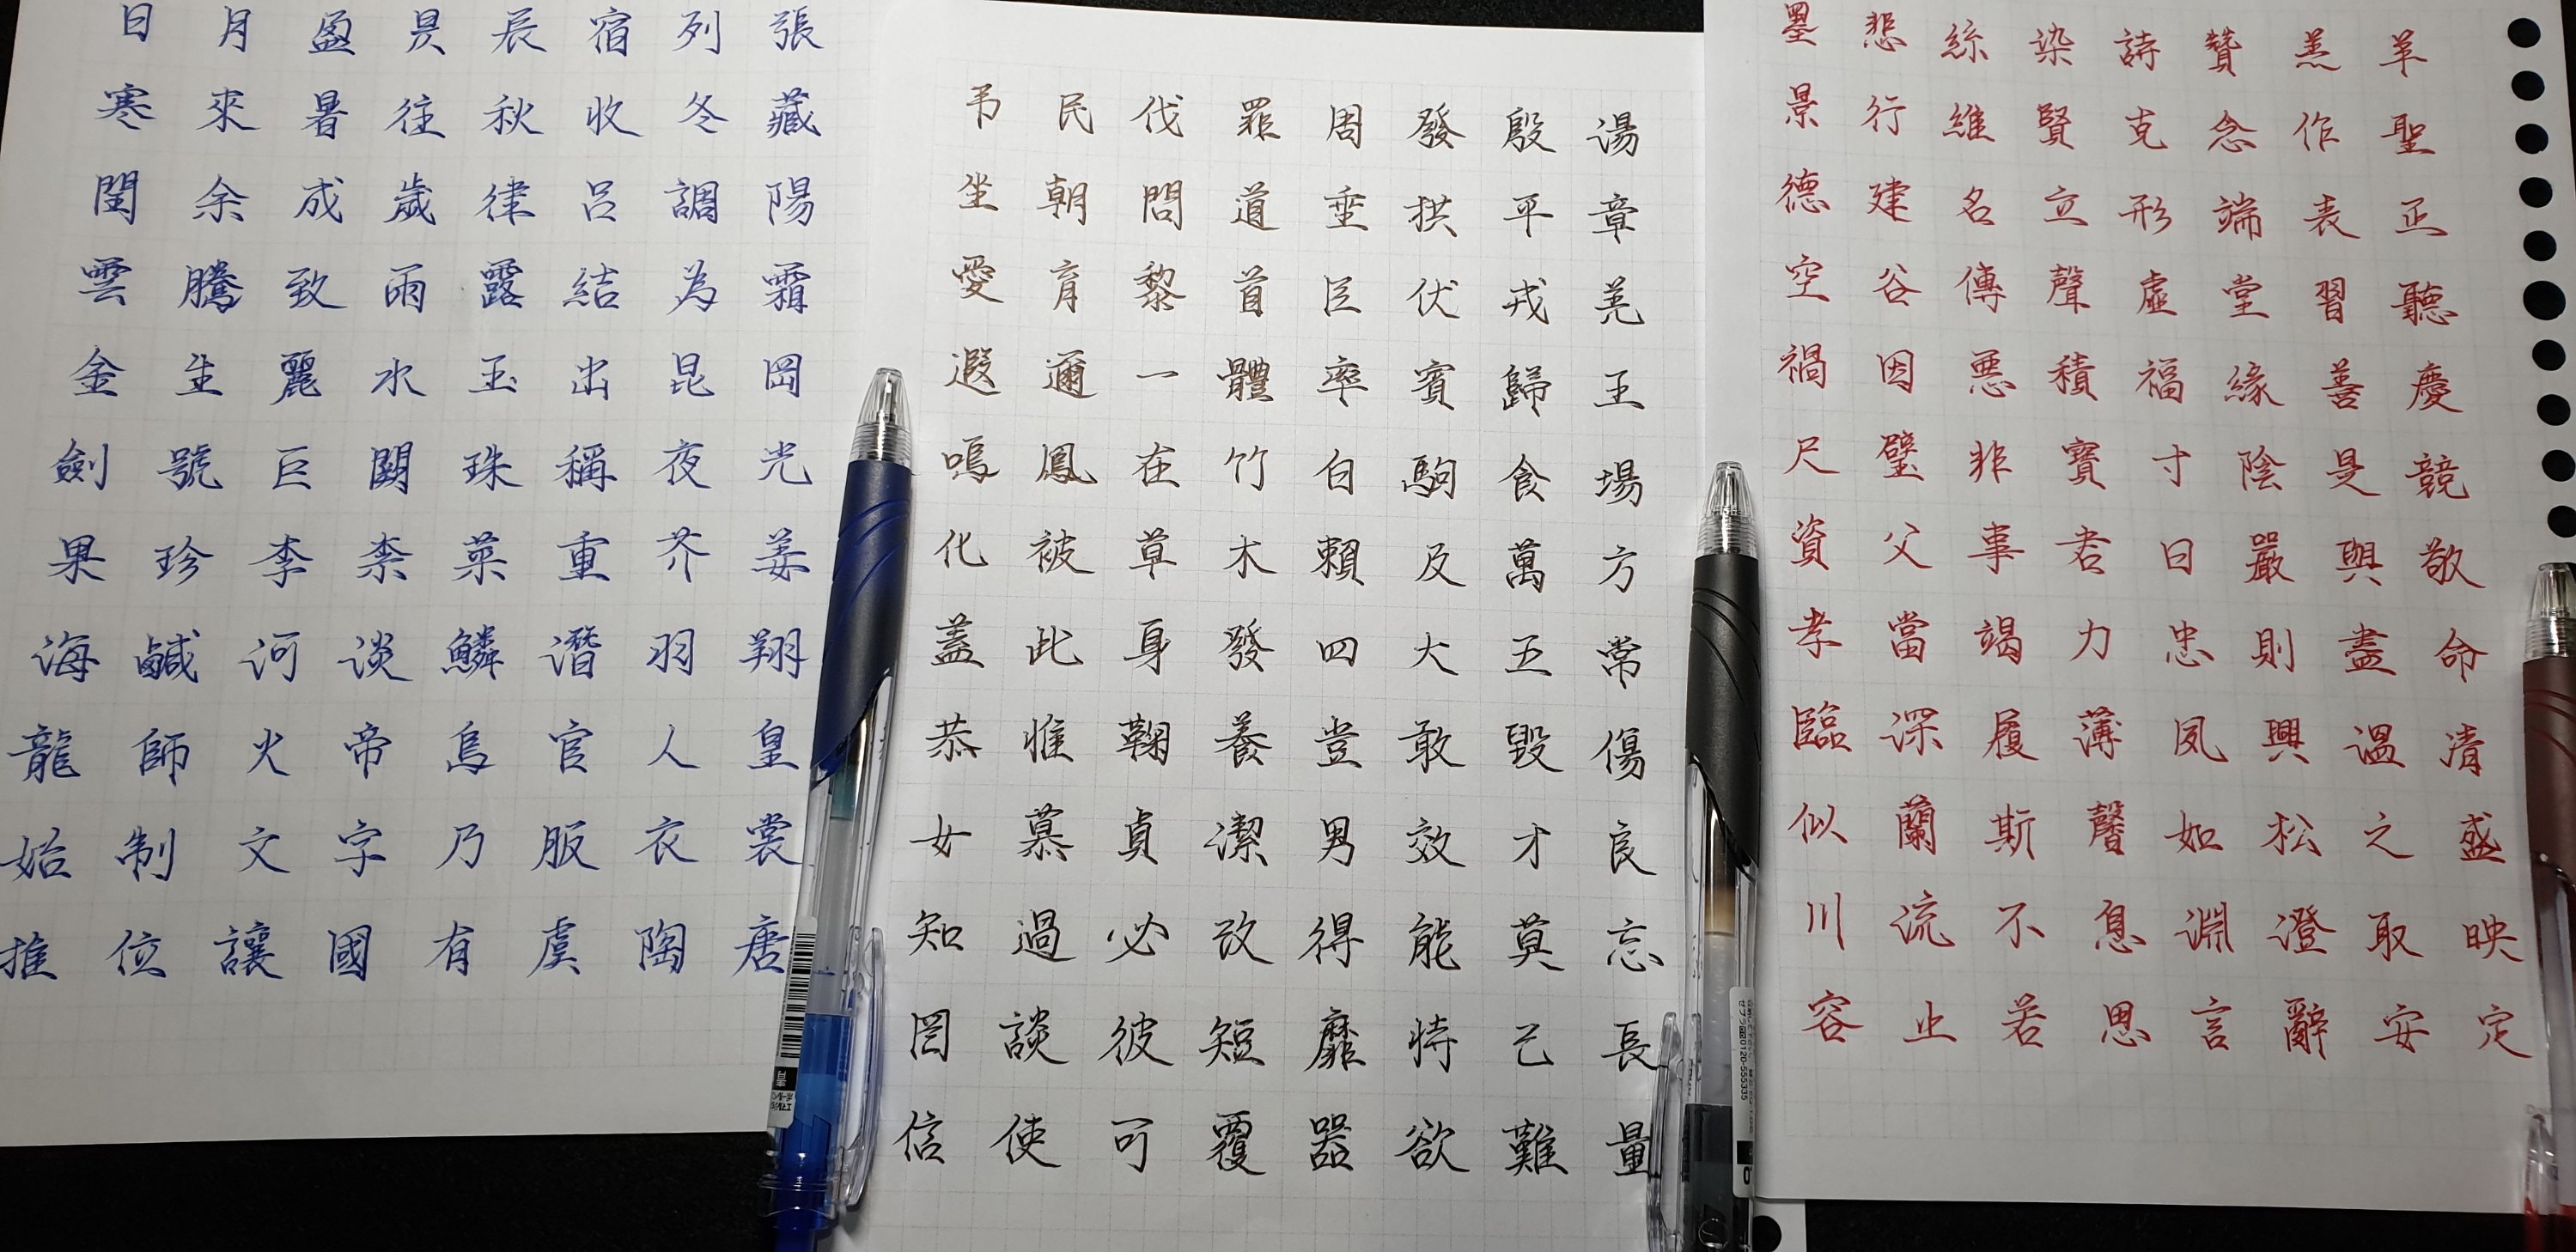 日月盈昃辰宿列張
寒來暑往秋收冬藏
閏余成歲律呂調陽
雲騰致雨露結為霜
金生麗水玉出昆岡
劍號巨闕珠稱夜光
果珍李柰菜重芥姜
海鹹河淡鱗潛羽翔
龍師火帝鳥官人皇
始制文字乃服衣裳
推位讓國有虞陶唐
弔民伐罪周發殷湯
坐朝問道垂拱平章
愛育黎首臣伏戎羌
遐邇一體率賓歸王
鳴鳳在竹白駒食場
化被草木賴及萬方
蓋此身發四大五常
恭惟鞠養豈敢毀傷
女慕貞潔男效才良
知過必改得能莫忘
罔談彼短靡恃己長
信使可覆器欲難量
墨悲絲染詩贊羔羊
景行維賢克念作聖
德建名立形端表正
空谷傳聲虛堂習聽
禍因惡積福緣善慶
尺璧非寶寸陰是競
資父事君曰嚴與敬
孝當竭力忠則盡命
臨深履薄夙興溫凊
似蘭斯馨如松之盛
川流不息淵澄取映
容止若思言辭安定
青
0120-555335